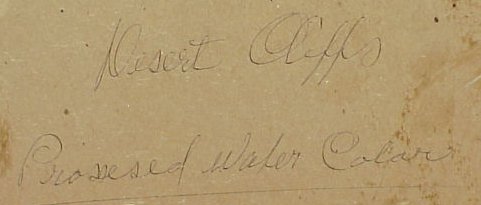 Desert Cliffs
Processed Water Color